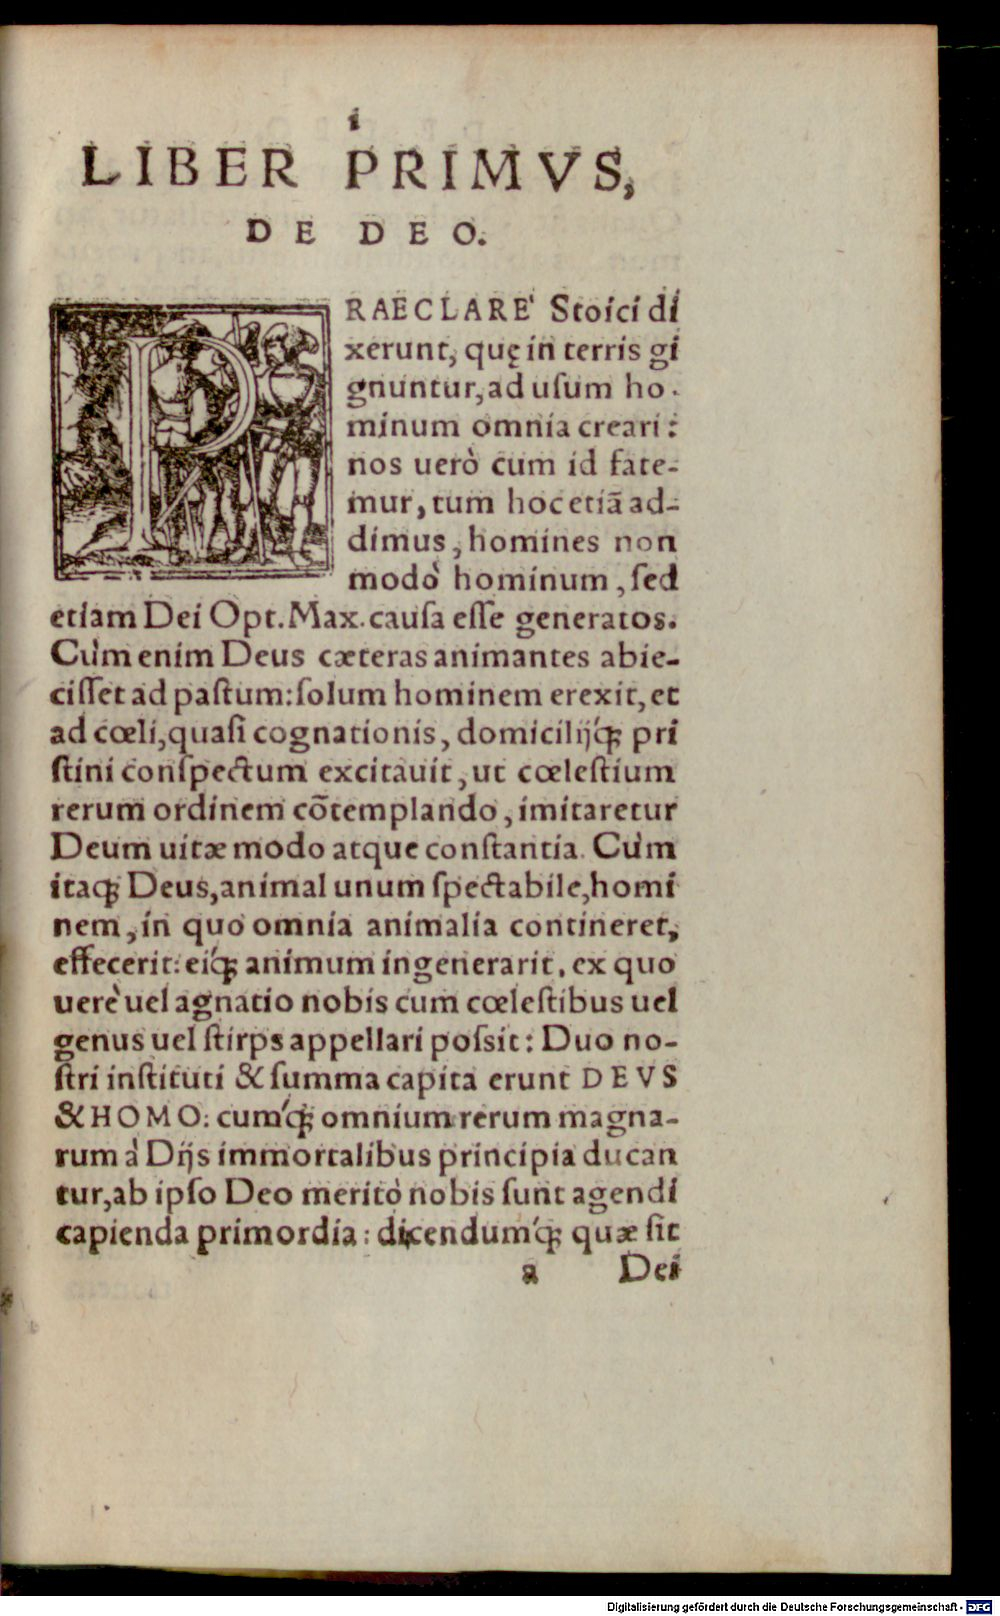 i
LIBER PRIMVS,
DE DEO.
PRAECLARE' Stoici di
xerunt, quę in terris gi
gnuntur, ad uſum ho-
minum omnia creari:
nos uerò cum id fate-
mur, tum hoc etiã ad-
dimus, homines non
modò hominum, ſed
etiam Dei Opt. Max. cauſa eſſe generatos.
Cùm enim Deus cæteras animantes abie-
ciſſet ad paſtum: ſolum hominem erexit, et
ad cœli, quaſi cognationis, domicilijq́ꝫ pri
ſtini conſpectum excitauit, ut cœleſtium
rerum ordinem cõtemplando, imitaretur
Deum uitæ modo atque conſtantia. Cùm
itaqꝫ Deus, animal unum ſpectabile, homi
nem, in quo omnia animalia contineret,
effecerit: eiq́ꝫ animum ingenerarit, ex quo
uerè uel agnatio nobis cum cœleſtibus uel
genus uel ſtirps appellari poſsit: Duo no-
ſtri inſtituti & ſumma capita erunt DEVS
& HOMO: cumq́ꝫ omnium rerum magna-
rum à Dijs immortalibus principia ducan
tur, ab ipſo Deo meritò nobis ſunt agendi
capienda primordia: dicendumq́ꝫ quæ ſit
a Dei
Digitalisierung gefördert durch die Deutsche Forschungsgemeinschaft - DFG